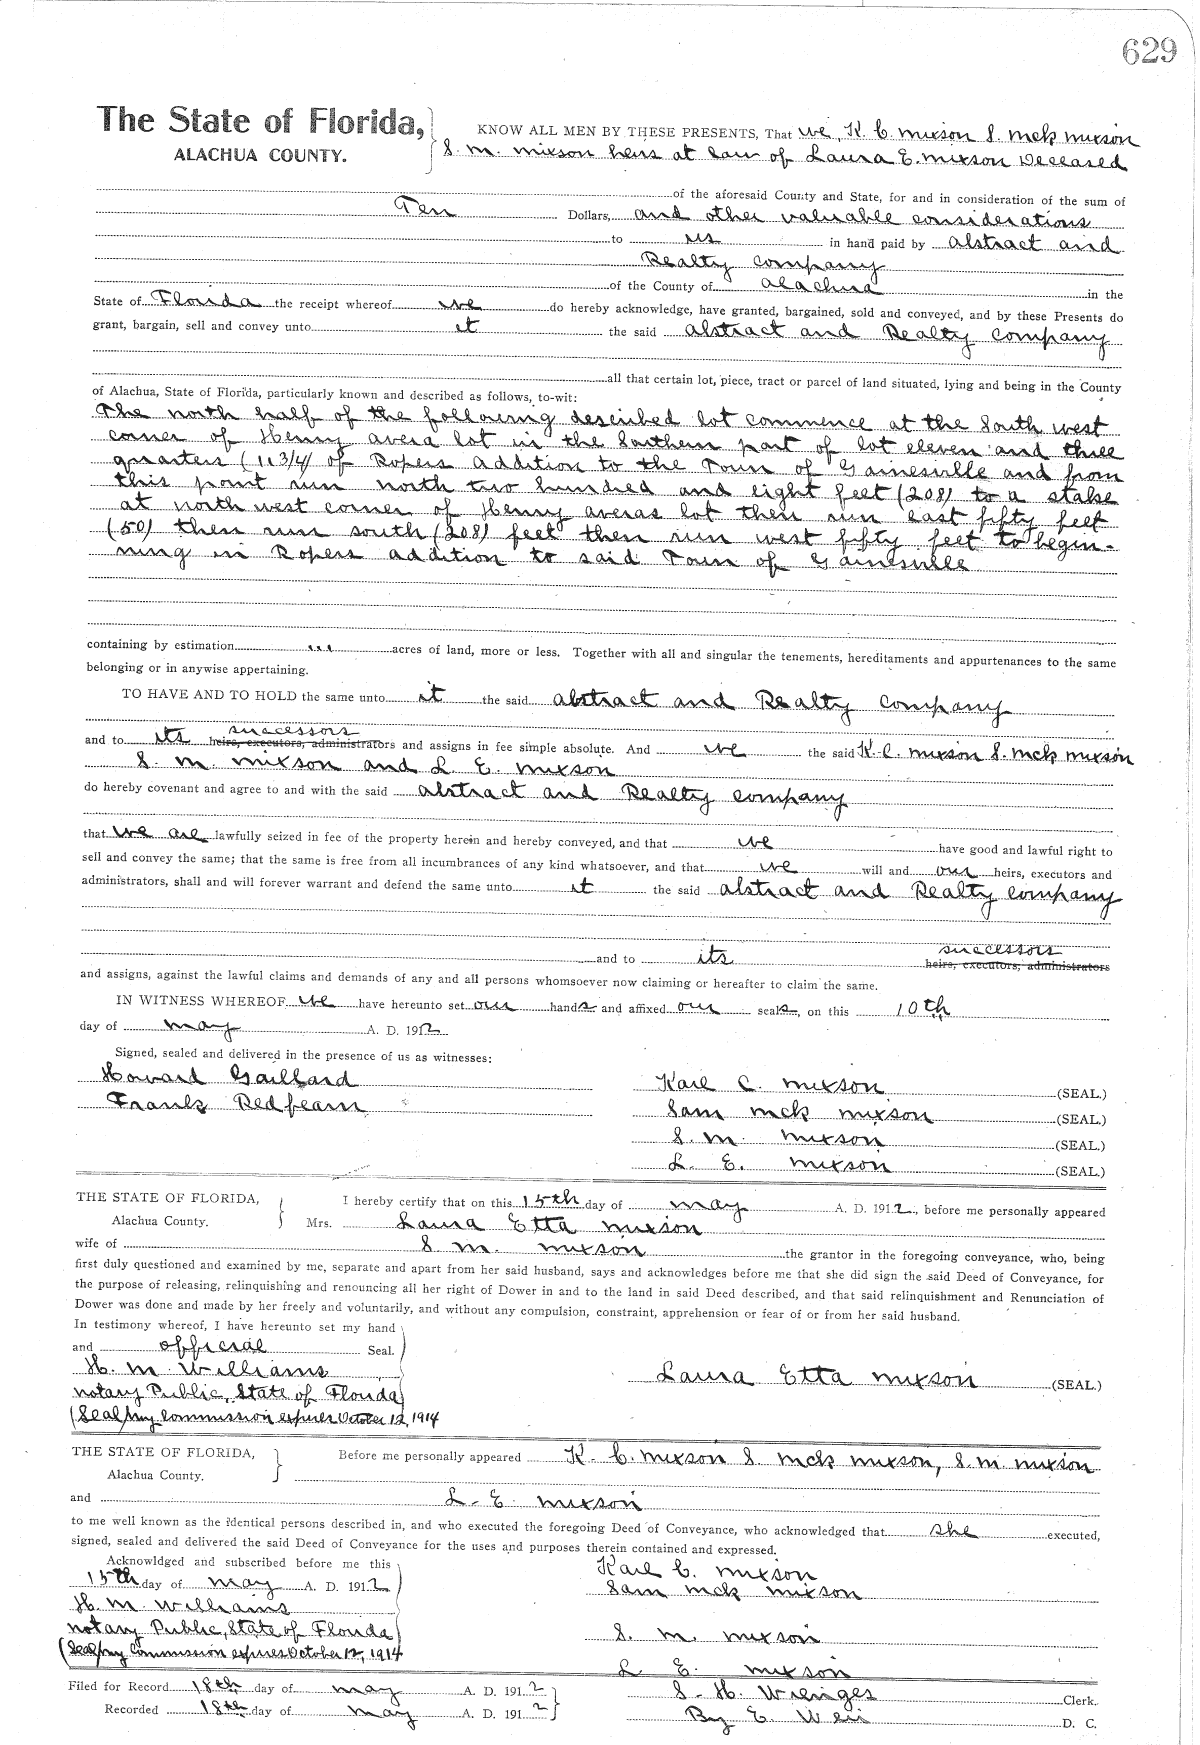 629
The State of Florida,
ALACHUA COUNTY.
KNOW ALL MEN BY THESE PRESENTS, That we, K. C. Mixson S. McK Mixson
S. M. Mixson heirs at law of Laura E. Mixson Deceased
of the aforesaid County and State, for and in consideration of the sum of
Ten Dollars, and other valuable considerations
to us in hand paid by Abstract and
Realty Company
of the County of Alachua in the
State of Florida the receipt whereof we do hereby acknowledge, have granted, bargained, sold and conveyed, and by these Presents do
grant, bargain, sell and convey unto it the said Abstract and Realty Company
all that certain lot, piece, tract or parcel of land situated, lying and being in the County
of Alachua, State of Florida, particularly known and described as follows, to-wit:
The north half of the following described lot commence at the South west
corner of Henry Avera lot in the Southern part of lot eleven and three
quarters (11 3/4) of Ropers Addition to the Town of Gainesville and from
this point run north two hundred and eight feet (208) to a stake
at north west corner of Henry Averas lot then run East fifty feet
(50) then run south (208) feet then run west fifty feet to begin-
ning in Ropers addition to said Town of Gainesville
containing by estimation ... acres of land, more or less. Together with all and singular the tenements, hereditaments and appurtenances to the same
belonging or in anywise appertaining.
TO HAVE AND TO HOLD the same unto it the said Abstract and Realty Company
successors
and to its heirs, executors, administrators and assigns in fee simple absolute. And we the said K. C. Mixson S. McK Mixson
S. M. Mixson and L. E. Mixson
do hereby covenant and agree to and with the said Abstract and Realty Company
that we are lawfully seized in fee of the property herein and hereby conveyed, and that we have good and lawful right to
sell and convey the same; that the same is free from all incumbrances of any kind whatsoever, and that we will and our heirs, executors and
administrators, shall and will forever warrant and defend the same unto it the said Abstract and Realty Company
successors
and to its heirs, executors, administrators
and assigns, against the lawful claims and demands of any and all persons whomsoever now claiming or hereafter to claim the same.
IN WITNESS WHEREOF we have hereunto set our hands and affixed our seals, on this 10th
day of May A. D. 1912
Signed, sealed and delivered in the presence of us as witnesses:
Howard Gaillard
Frank Redfearn
Karl C. Mixson (SEAL.)
Sam McK Mixson (SEAL.)
S. M. Mixson (SEAL.)
L. E. Mixson (SEAL.)
THE STATE OF FLORIDA,
Alachua County.
I hereby certify that on this 15th day of May A. D. 1912, before me personally appeared
Mrs. Laura Etta Mixson
wife of S. M. Mixson the grantor in the foregoing conveyance, who, being
first duly questioned and examined by me, separate and apart from her said husband, says and acknowledges before me that she did sign the said Deed of Conveyance, for
the purpose of releasing, relinquishing and renouncing all her right of Dower in and to the land in said Deed described, and that said relinquishment and Renunciation of
Dower was done and made by her freely and voluntarily, and without any compulsion, constraint, apprehension or fear of or from her said husband.
In testimony whereof, I have hereunto set my hand
and official Seal.
H. M. Williams
Notary Public, State of Florida
(Seal) My Commission expires October 12, 1914
Laura Etta Mixson (SEAL.)
THE STATE OF FLORIDA,
Alachua County.
Before me personally appeared K. C. Mixson S. McK Mixson, S. M. Mixson
and L. E. Mixson
to me well known as the identical persons described in, and who executed the foregoing Deed of Conveyance, who acknowledged that she executed,
signed, sealed and delivered the said Deed of Conveyance for the uses and purposes therein contained and expressed.
Acknowldged and subscribed before me this
15th day of May A. D. 1912
H. M. Williams
Notary Public, State of Florida
(Seal) My Commission expires October 12, 1914
Karl C. Mixson
Sam McK Mixson
S. M. Mixson
L. E. Mixson
Filed for Record 18th day of May A. D. 1912
Recorded 18th day of May A. D. 1912
S. H. Wienges Clerk.
By E. D. C.